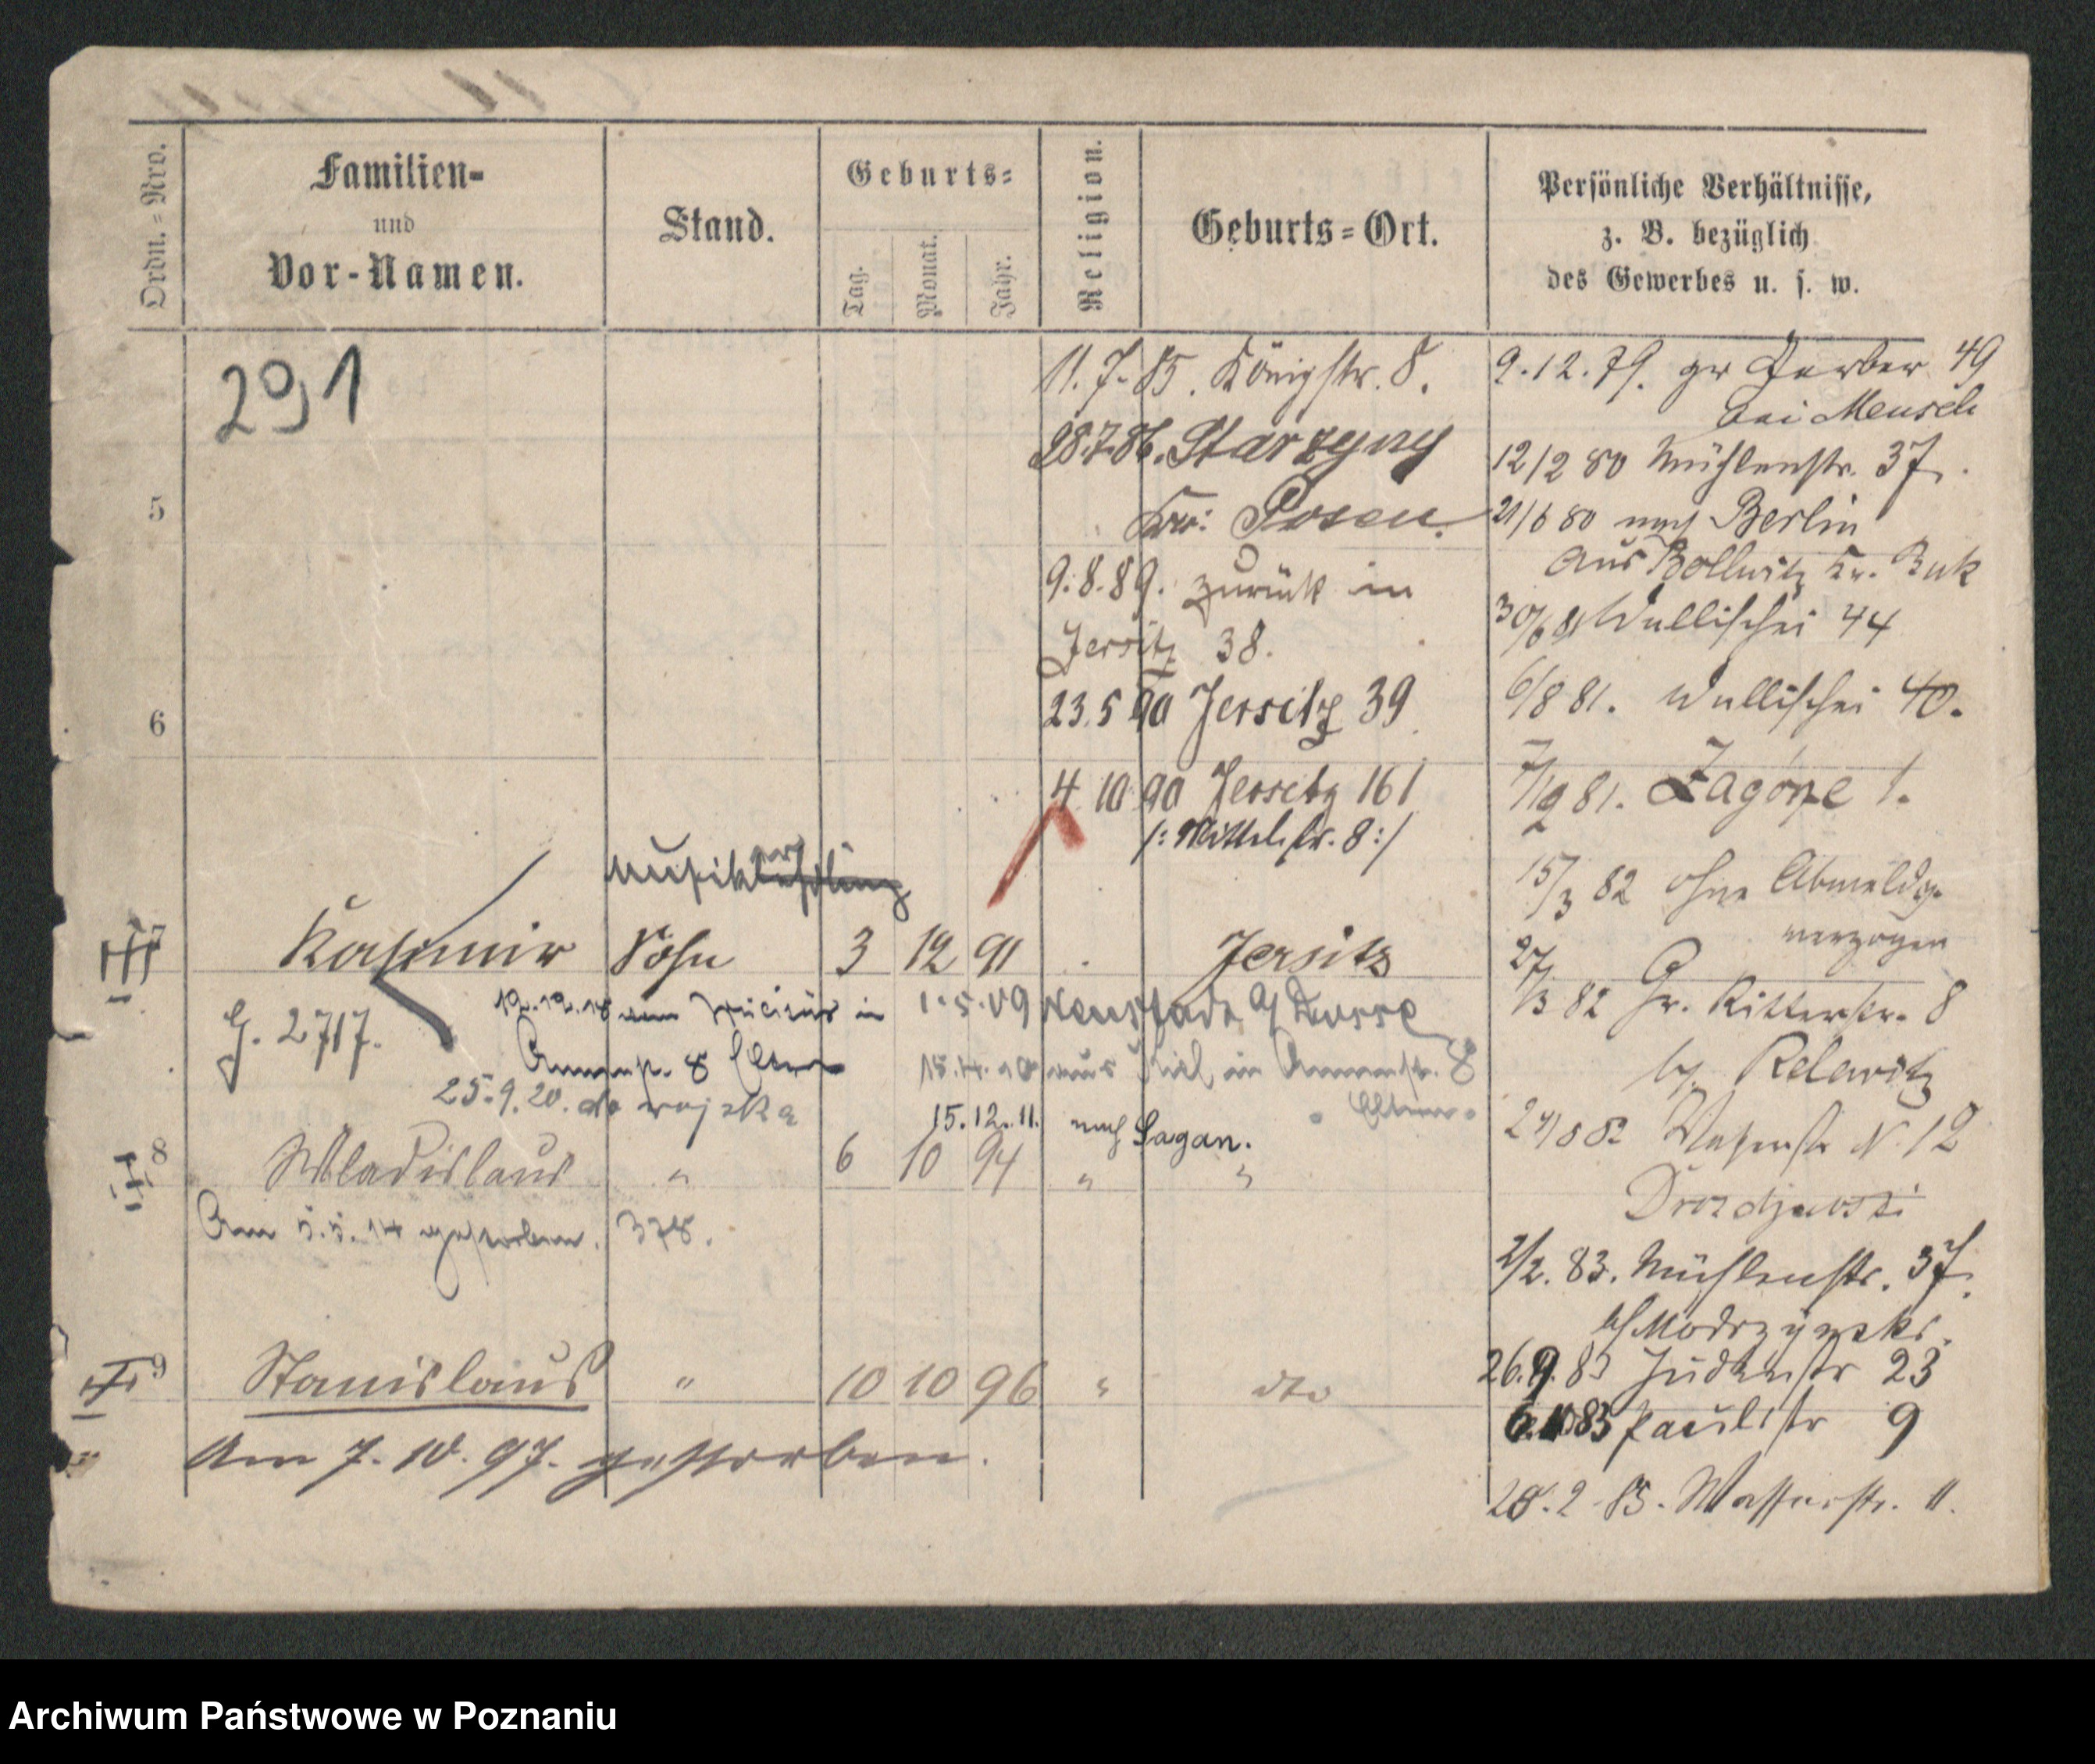 Ordn.=Nro.
Familien-
und
Vor-Namen.
Stand.
Geburts=
Tag.
Monat.
Jahr.
Religion.
Geburts=Ort.
Persönliche Verhältnisse,
z. B. bezüglich
des Gewerbes u. s. w.
291
5
6
11. 7. 85. Königstr. 8.
28.7.86. Starzyny
Kr: Posen.
9.8.89. zurück in
Jersitz 38.
23.5 90 Jersitz 39
4 10 90 Jersitz 161
/: Mittelstr. 8 :/
9.12.79. gr Gerber 49
bei Mensch
12/2 80 Mühlenstr. 37.
21/6 80 nach Berlin
aus Bollwitz Kr. Buk
30/6 81 Wallischei 44
6/8 81. Wallischei 40.
7/12 81. Zagórze 1.
15/3 82 ohne Abmeldg.
verzogen
27/3 82 Gr. Ritterstr. 8
24/8 82 N 12
2/2. 83. Mühlenstr. 37.
26.9.83 Judenstr 23
6.10 83 Paulistr 9
28.2 85. Wasserstr. 11.
7 Kasimir Sohn 3 12 91 Jersitz
G. 2717.
12.12.18 vom in
8 Eltern
25.9.20. do wojska
1.5.09 Neustadt a/ Dosse
15.4.10 aus Kiel in Annenstr. 8
Eltern.
15.12.11. nach Sagan.
8 Wladislaus " 6 10 94 " "
Am 5.5.14 gestorben. 378.
9 Stanislaus " 10 10 96 " dto
Am 7.10.97. gestorben.
Archiwum Państwowe w Poznaniu